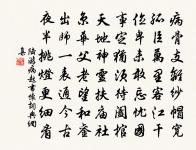 病骨支離紗帽寬
孤臣萬里客江干
位卑未敢忘憂國
事定猶須待闔棺
天地神靈扶廟社
京華父老望和鑾
出師一表通今古
夜半挑燈更細看
陸游病起書懷詞典網
集